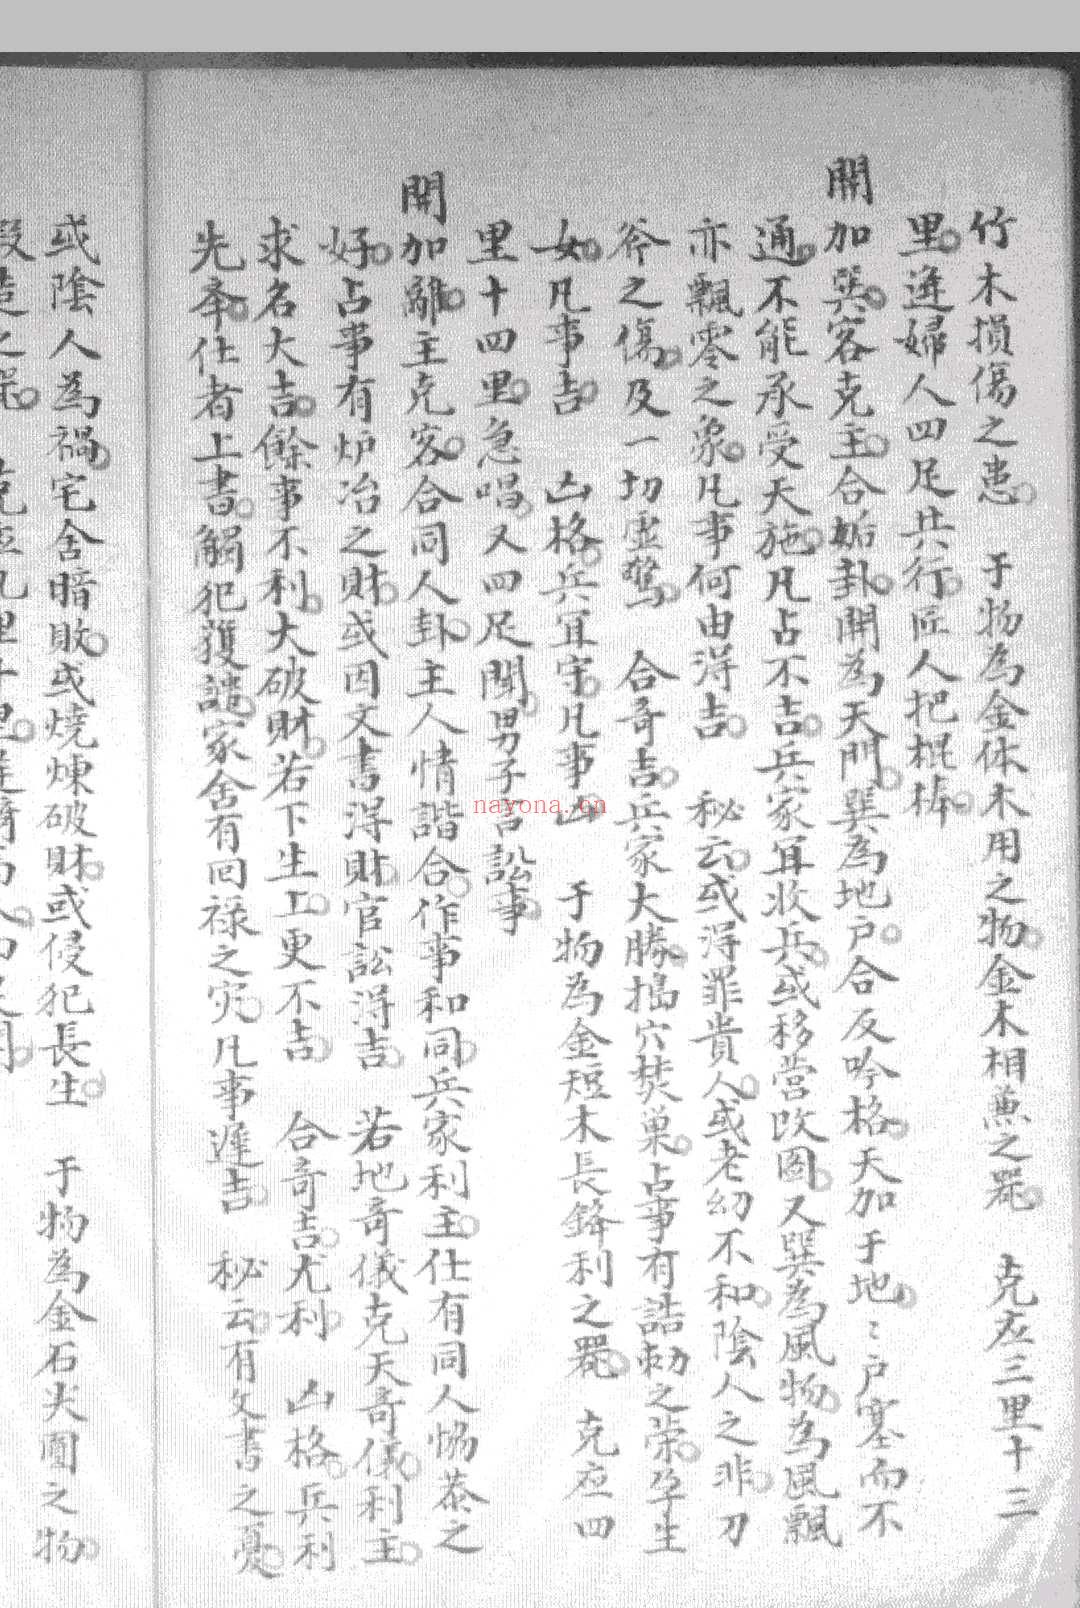 竹木損傷之患　于物為金体木用之物金木相蕙之罷　克应三里十三
里逢婦人四足共行匠人把棍棒
開加巽客克主合姤卦開為天門巽為地户合反吟格天加于地〻户塞而不
通不能承受天施凡占不吉兵家宜收兵或移营改圖又巽為風物為風飄
亦飄零之象凡事何由得吉　秘云或得罪貴人或老幼不和陰人之非刀
斧之傷及一切虚驚　合奇吉兵家大勝搗穴焚巢占事有誥勅之荣孕生
女凡事吉　凶格兵宜守凡事凶　于物為金短木長鋒利之罷　克应四
里十四里急唱又四足聞男子言訟事
開加離主克客合同人卦主人情諧合作事和同兵家利主仕有同人恊恭之
好占事有炉冶之財或因文書得財官訟得吉　若地奇儀克天奇儀利主
求名大吉餘事不利大破財若下生上更不吉　合奇吉尤利　凶格兵利
先奉仕者上書觸犯獲譴家舍有回禄之灾凡事遲吉　秘云有文書之憂
或陰人為禍宅舍暗敗或燒煉破財或侵犯長生　于物為金石尖圓之物
nayona.cn